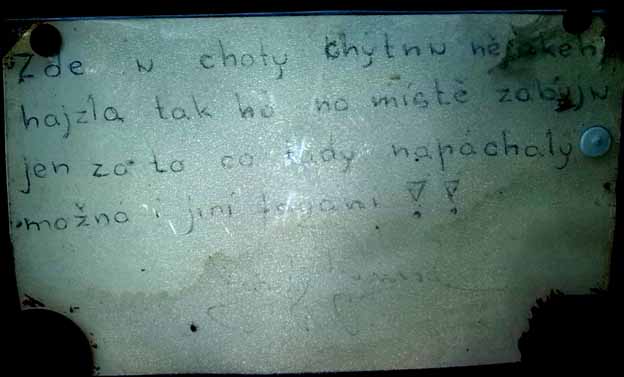 Zde u chaty chytnu nějakeh
hajzla tak ho na místě zabyju
jen za to co tady napáchaly
možná i jiní tágani !!